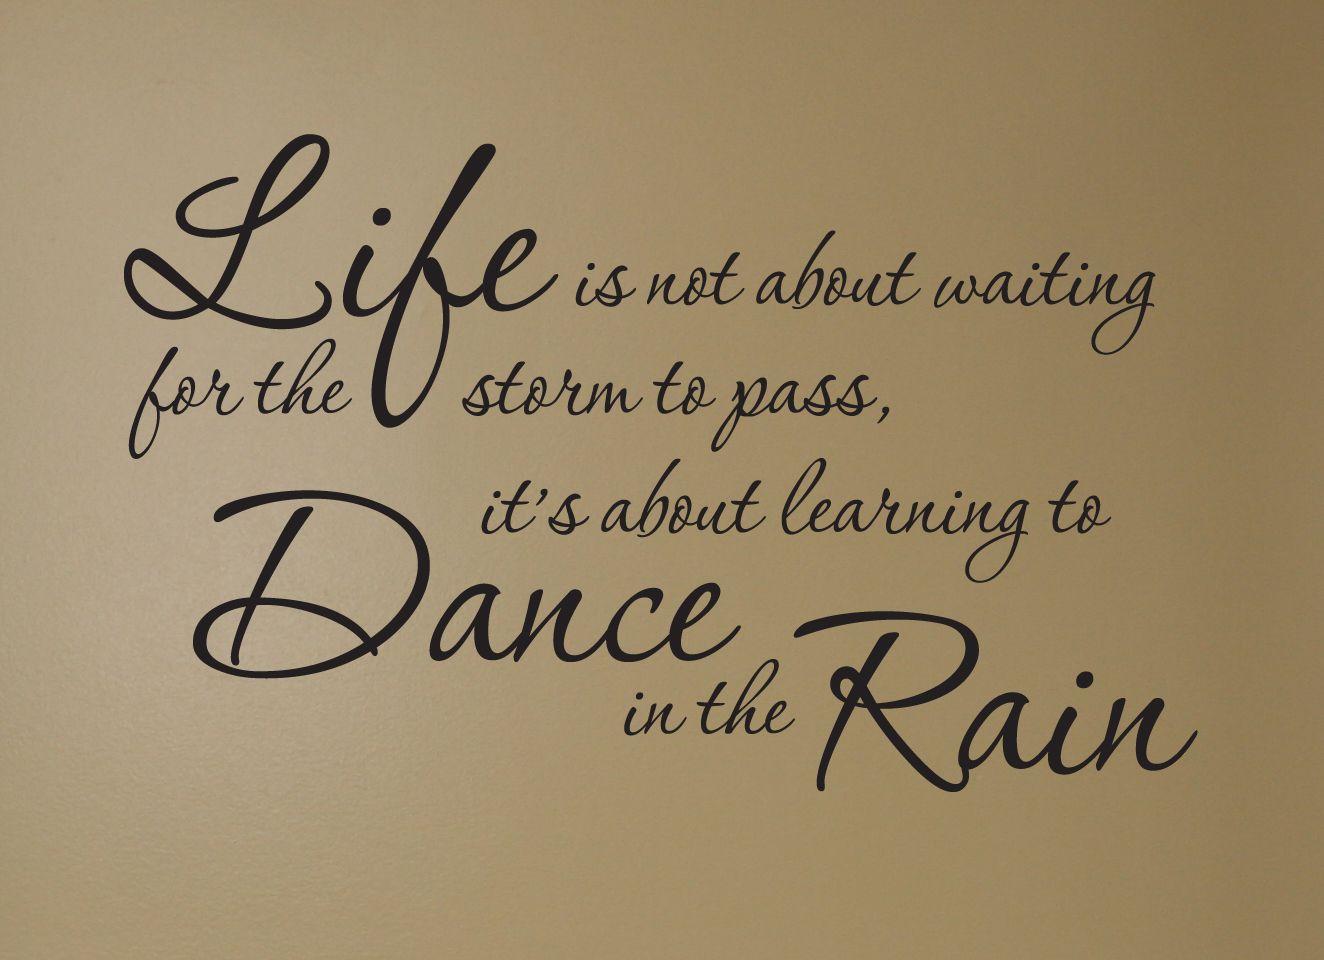 Life is not about waiting
for the storm to pass,
it's about learning to
Dance
in the Rain